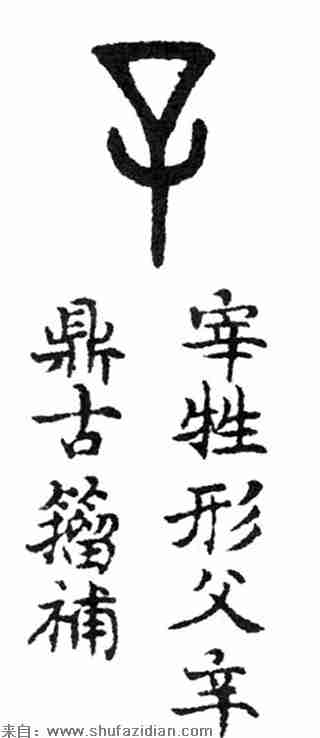 宰牲形父辛
鼎古籀補
来自：www.shufazidian.com